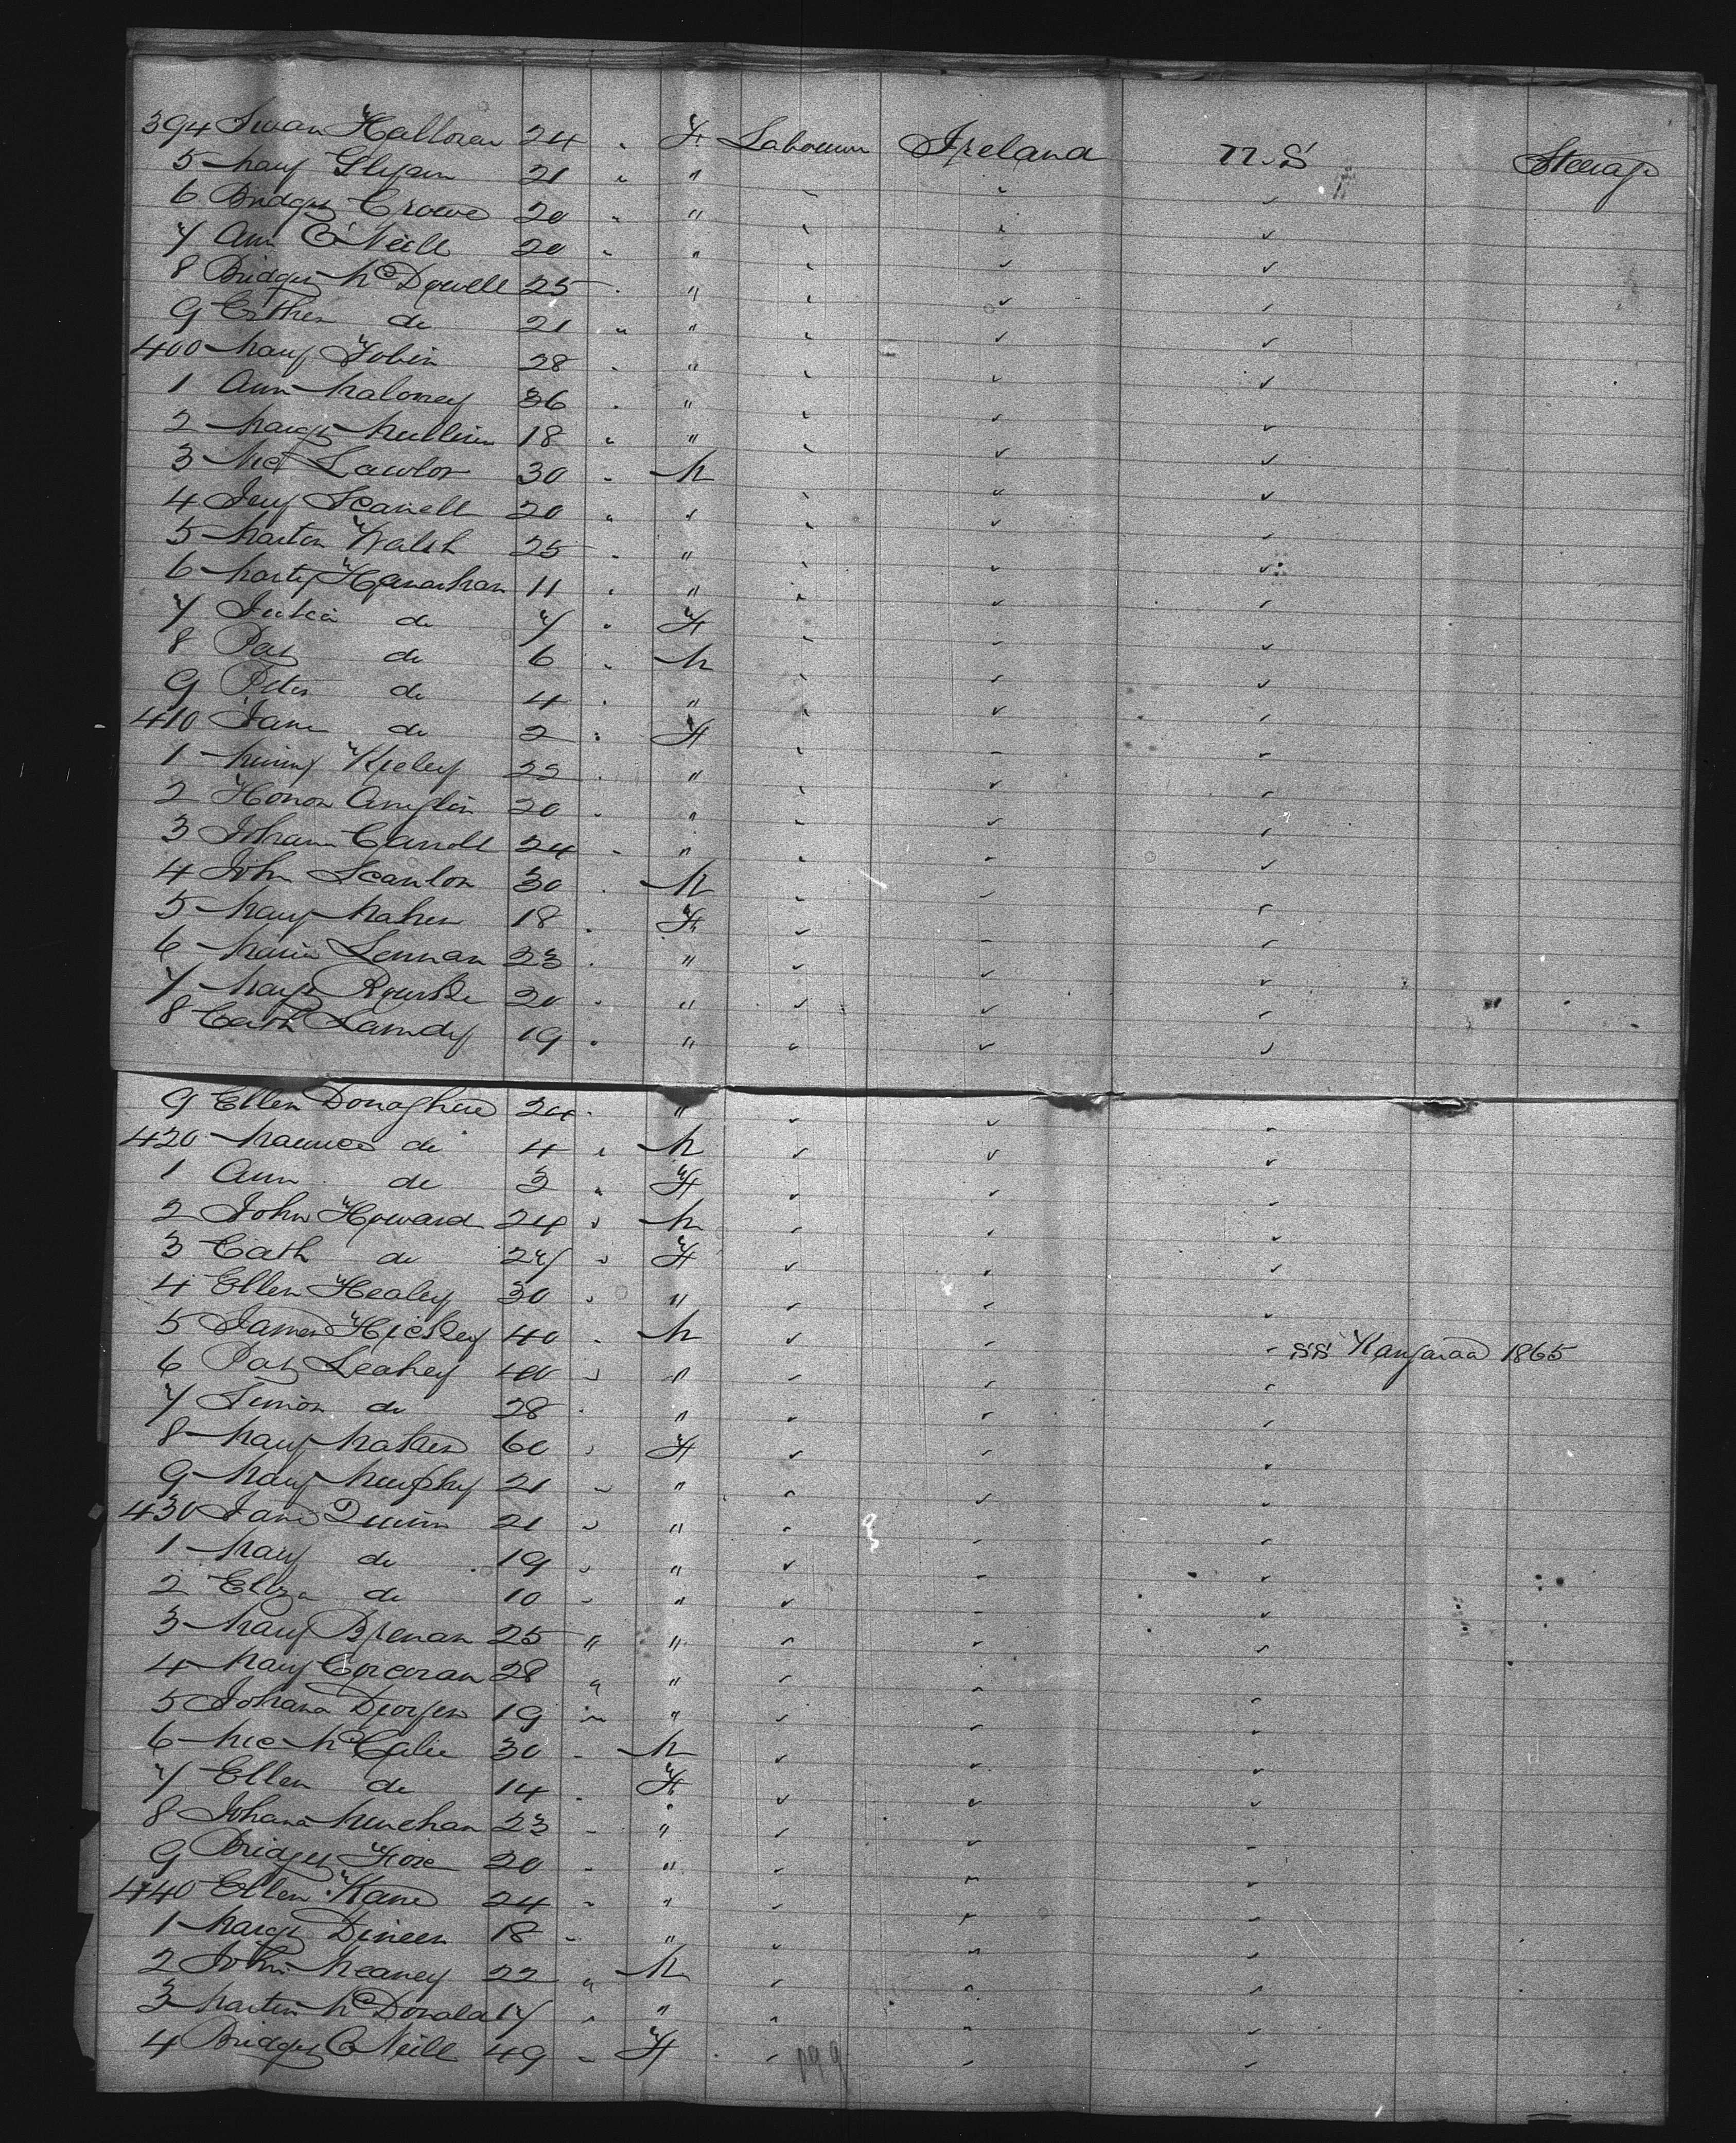 394 Susan Halloran 24 " F Labourer Ireland U.S Steerage
5 Mary Glynn 21 " "
6 Bridget Crowe 20 " "
7 Ann O'Neill 20 " "
8 Bridget McDowell 25 " "
9 Esther do 21 " "
400 Mary Tobin 28 " "
1 Ann Maloney 36 " "
2 Margt Mullins 18 " "
3 Mic Lawlor 30 " M
4 Jerry Scanell 20 " "
5 Martin Walsh 25 " "
6 Marty Hanarhan 11 " "
7 Julia do 7 " F
8 Pat do 6 " M
9 Peter do 4 " "
410 Jane do 2 " F
1 Kieley 22 " "
2 Honor Anglin 20 " "
3 Johanna Carroll 24 " "
4 John Scanlon 30 " M
5 Mary Maher 18 " F
6 Maria Lennan 23 " "
7 Margt Rourke 20 " "
8 Cath 19 " "
9 Ellen Donaghue 24 " "
420 Maurice do 4 " M
1 Ann do 2 " F
2 John Howard 24 " M
3 Cath do 27 " F
4 Ellen Healey 30 " "
5 James Hickey 40 " M SS Kangaroo 1865
6 Pat Leahey 40 " "
7 Simon do 28 " "
8 Mary Maher 60 " F
9 Mary Murphy 21 " "
430 Jane Quinn 21 " "
1 Mary do 19 " "
2 Eliza do 10 " "
3 Mary Brenan 25 " "
4 Mary Corcoran 28 " "
5 Johana 19 " "
6 Mic 30 " M
7 Ellen do 14 " F
8 Johana 23 " "
9 Bridget 20 " "
440 Ellen Kane 24 " "
1 Margt Dineen 18 " "
2 John Meaney 22 " M
3 Martin McDonald 17 " "
4 Bridget O'Neill 49 " F